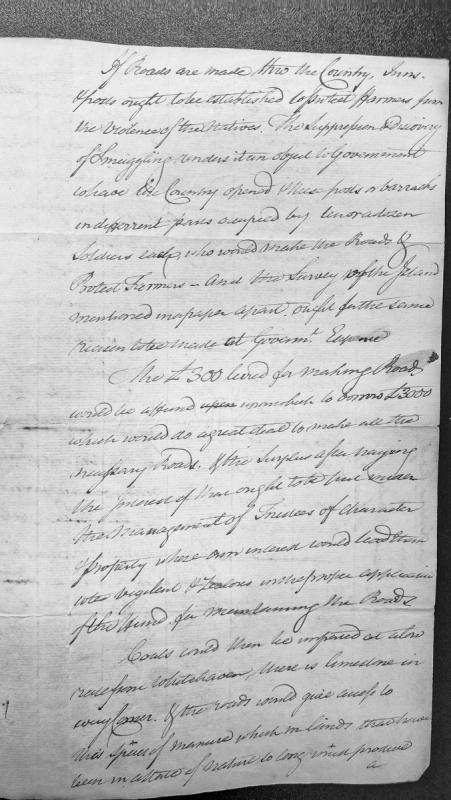 If Roads are made thro the Country, Inns.
& posts ought to be established to protect Farmers from
the Violence of the Natives. The Suppression & Discovery
of Smuggling renders it an object to Government
to have the Country opened & these posts or barracks
in different parts occupied by ten or a dozen
Soldiers each, who would make the Roads &
Protect Farmers – And the Survey of the Island
mentioned in a paper apart, ought for the same
reason to be made at Governmt. Expence
The £300 levied for making Roads
would be a fund upon which to borrow £3000
which would do a great deal to make all the
necessary Roads. & the Surplus after paying
the Interest of that ought to be put under
the Management of Trustees of Character
& property whose own interest would lead them
to be vigilent & Zealous in the proper application
of the Fund for maintaining the Roads.
Coals could then be imported at a low
rate from Whitehaven, there is limestone in
every Corner. & the roads would give access to
this Species of manure which in lands that have
been in a state of Nature so long must produce
a